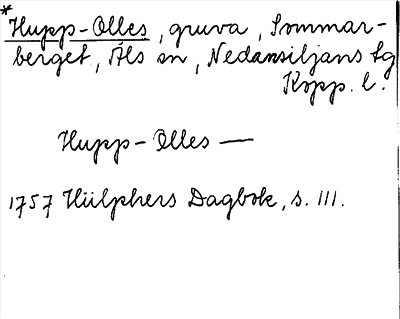 *Hupp-Olles, gruva, Sommar-
berget, Åls sn, Nedansiljans tg
Kopp. l.
Hupp-Olles —
1757 Hülphers Dagbok, s. 111.